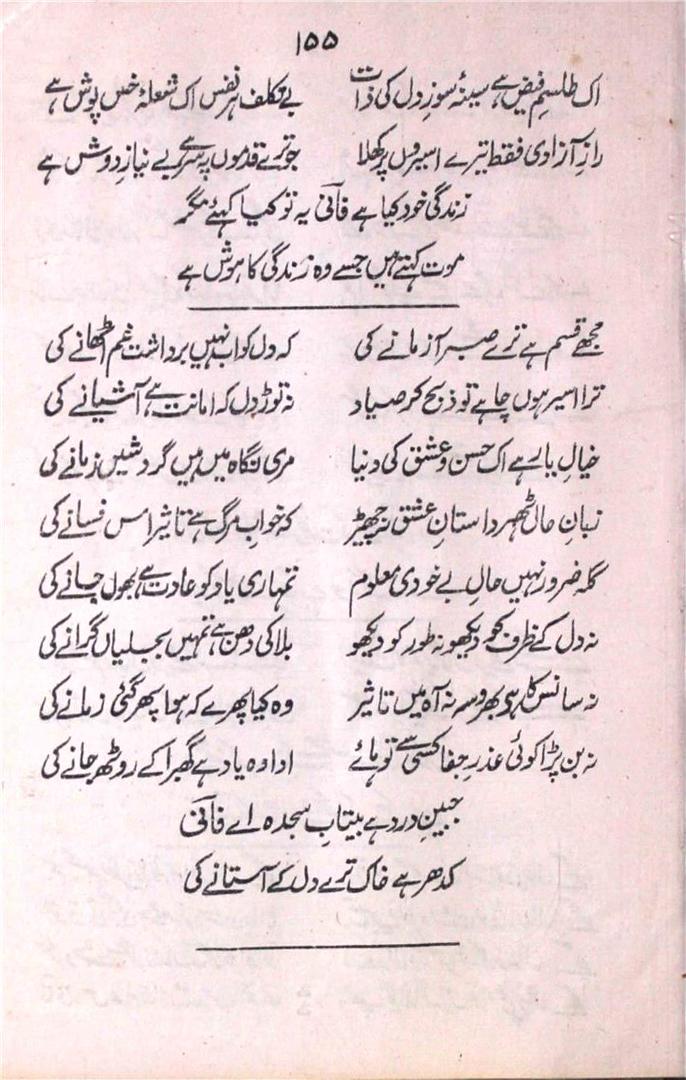 ۱۵۵
اک طلسمِ فیض ہے سینۂ سوزِ دل کی ذات بے تکلف ہر نفس اک شعلۂ خس پوش ہے
رازِ آزادی فقط تیرے اسیروں پر کھلا جو ترے قدموں پہ سر ہے بے نیازِ دوش ہے
زندگی خود کیا ہے فانی یہ تو کیا کہئے مگر
موت کہتے ہیں جسے وہ زندگی کا ہوش ہے
مجھے قسم ہے ترے صبر آزمانے کی کہ دل کو اب نہیں برداشت غم اٹھانے کی
ترا اسیر ہوں چاہے تو ذبح کر صیاد نہ توڑ دل کہ امانت ہے آشیانے کی
خیالِ یار ہے اک حسن و عشق کی دنیا مری نگاہ میں ہیں گردشیں زمانے کی
زبانِ حال ٹھہر داستانِ عشق نہ چھیڑ کہ خوابِ مرگ ہے تاثیر اس فسانے کی
گلہ ضرور نہیں حالِ بے خودی معلوم تمہاری یاد کو عادت ہے بھول جانے کی
نہ دل کے ظرف کو دیکھو نہ طور کو دیکھو بلا کی دھن ہے تمہیں بجلیاں گرانے کی
نہ سانس کا ہی بھروسہ نہ آہ میں تاثیر وہ کیا پھرے کہ ہوا پھر گئی زمانے کی
نہ بن پڑا کوئی عذرِ جفا کسی سے تو ہائے ادا وہ یاد ہے گھبرا کے روٹھ جانے کی
جبینِ درد ہے بیتابِ سجدہ اے فانی
کدھر ہے خاک ترے دل کے آستانے کی